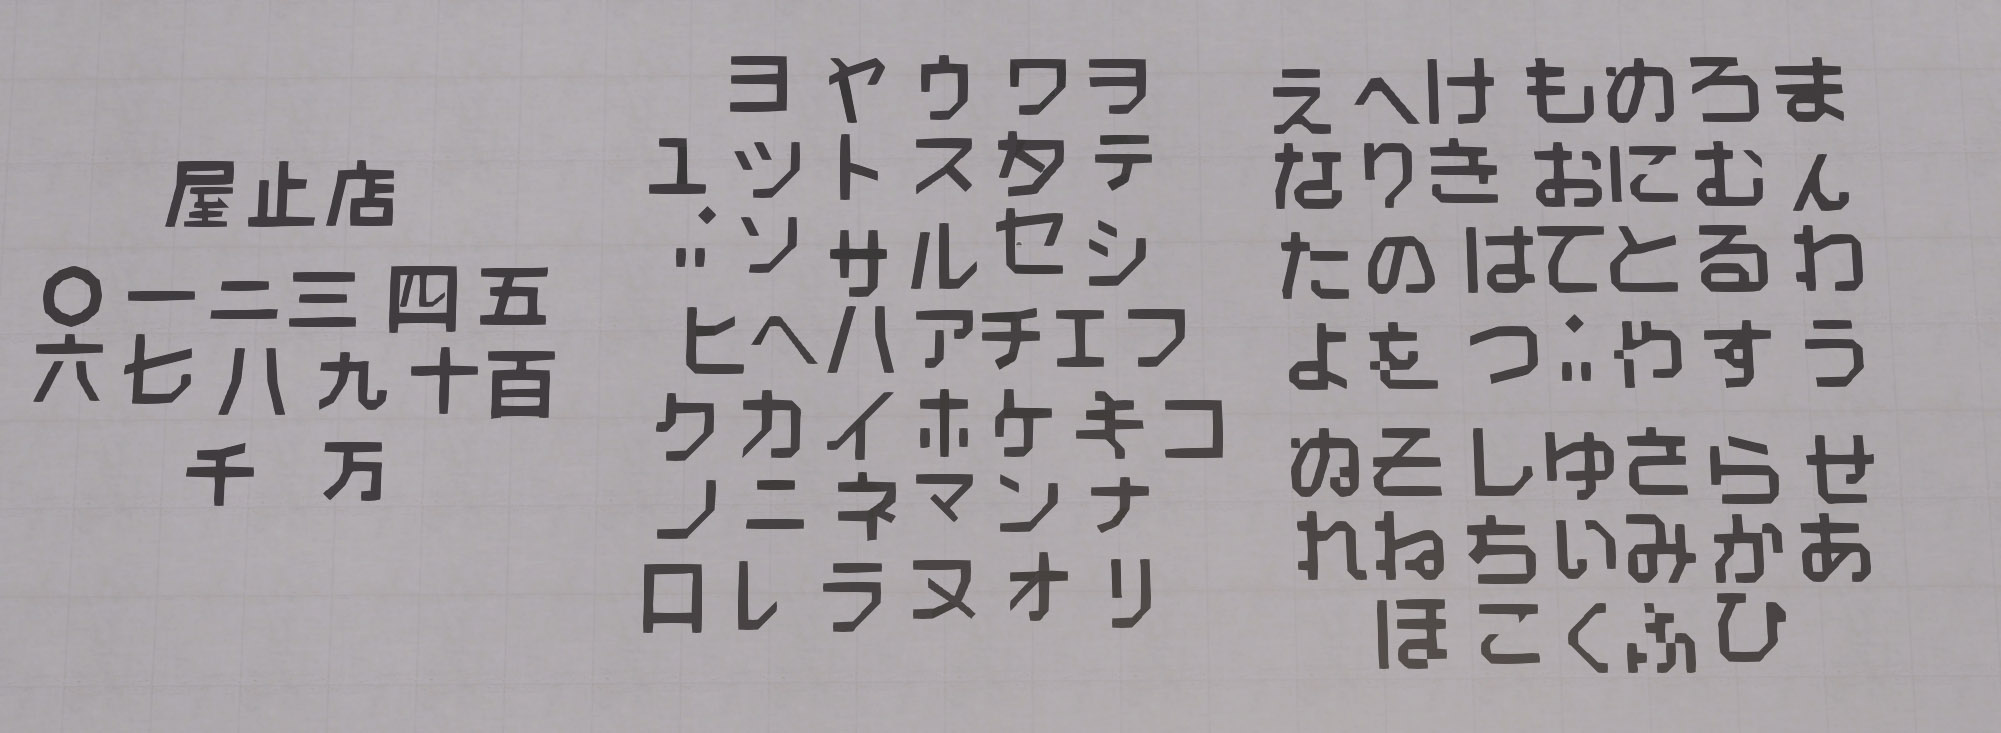 屋止店
〇一二三四五
六七八九十百
千万
ヨヤウワヲ
ユツトスタテ
ソサルセシ
ヒヘハアチエフ
クカイホケキコ
ノニネマンナ
ロレラヌオリ
えへけもめろま
なりきおにむん
たのはてとるわ
よをつやすう
ぬそしゆさらせ
れねちいみかあ
ほこくふひ